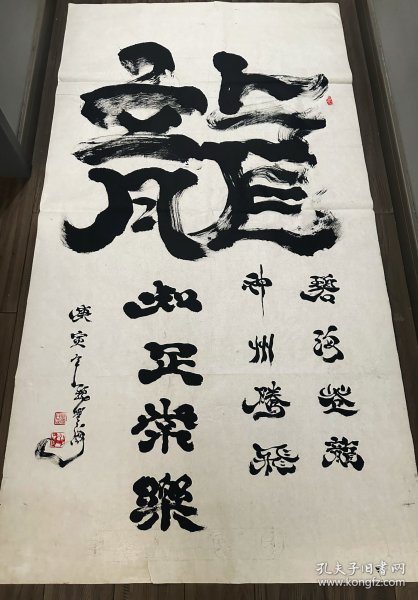 龍
碧海苍龍
神州騰飛
知足常樂
庚寅年
孔夫子旧书网
www.kongfz.com